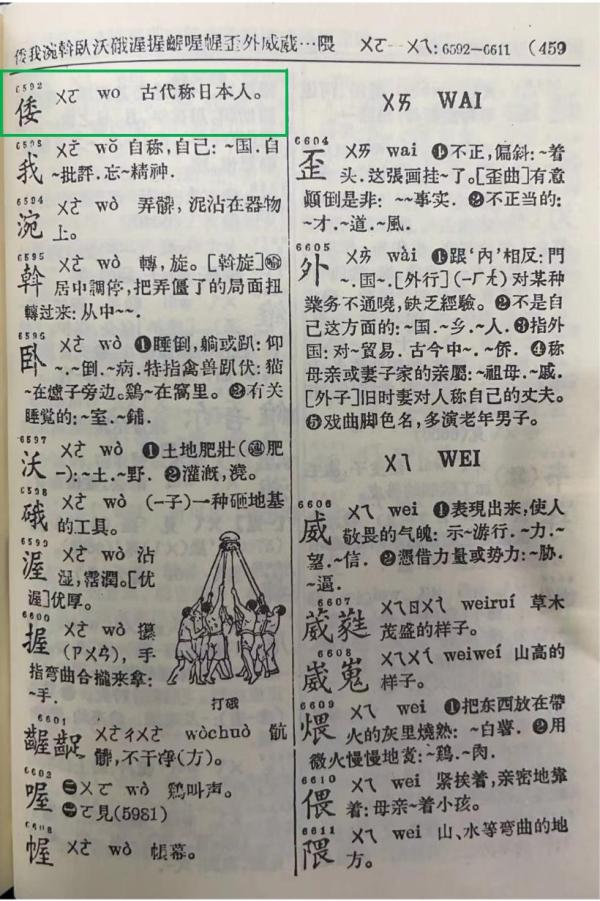 倭我涴斡臥沃硪渥握齷喔幄歪外威葳…隈 ㄨㄛ—ㄨㄟ: 6592—6611 (459
6592
倭 ㄨㄛ wo 古代称日本人。
我 ㄨㄛˇ wǒ 自称,自己: ~国.自
~批評.忘~精神.
6594
涴 ㄨㄛˋ wò 弄髒,泥沾在器物
上。
6595
斡 ㄨㄛˋ wò 轉,旋。[斡旋]
居中調停,把弄僵了的局面扭
轉过来:从中~~.
6596
卧 ㄨㄛˋ wò ❶睡倒,躺或趴: 仰
~.~倒.~病.特指禽兽趴伏: 猫
~在爐子旁边。鷄~在窩里。❷有关
睡觉的:~室.~鋪.
6597
沃 ㄨㄛˋ wò ❶土地肥壯(肥
—):~土.~野. ❷灌溉,澆。
6598
硪 ㄨㄛˋ wò (—子)一种砸地基
的工具。
6599
渥 ㄨㄛˋ wò 沾
湿,霑潤。[优
渥]优厚。
6600
握 ㄨㄛˋ wò 攥
(ㄗㄨㄢˋ), 手
指弯曲合攏来拿:
~手.
打硪
6601
齷齪 ㄨㄛˋㄔㄨㄛˋ wòchuò 骯
髒,不干净(方)。
6602
喔 ㄨㄛˋ wò 鷄叫声。
ㄛ見(5981)
幄 ㄨㄛˋ wò 帳幕。
ㄨㄞ WAI
6604
歪 ㄨㄞ wai ❶不正,偏斜: ~着
头.这張画挂~了。[歪曲]有意
顛倒是非: ~~事实. ❷不正当的:
~才.~道.~風.
6605
外 ㄨㄞˋ wài ❶跟‘内’相反: 門
~.国~.[外行](—ㄏㄤˊ)对某种
業务不通曉,缺乏經驗。❷不是自
己这方面的: ~国.~乡.~人.❸指外
国: 对~貿易. 古今中~.~侨. ❹称
母亲或妻子家的亲屬: ~祖母.~戚.
[外子]旧时妻对人称自己的丈夫。
❺戏曲脚色名,多演老年男子。
ㄨㄟ WEI
6606
威 ㄨㄟ wei ❶表現出来,使人
敬畏的气魄: 示~游行.~力.~
望.~信. ❷憑借力量或势力:~胁.
~逼.
6607
葳蕤 ㄨㄟㄖㄨㄟˊ weiruí 草木
茂盛的样子。
6608
崴嵬 ㄨㄟㄨㄟˊ weiwéi 山高的
样子。
6609
煨 ㄨㄟ wei ❶把东西放在帶
火的灰里燒熟: ~白薯. ❷用
微火慢慢地煑: ~鷄.~肉.
6610
偎 ㄨㄟ wei 紧挨着,亲密地靠
着: 母亲~着小孩。
6611
隈 ㄨㄟ wei 山、水等弯曲的地
方。